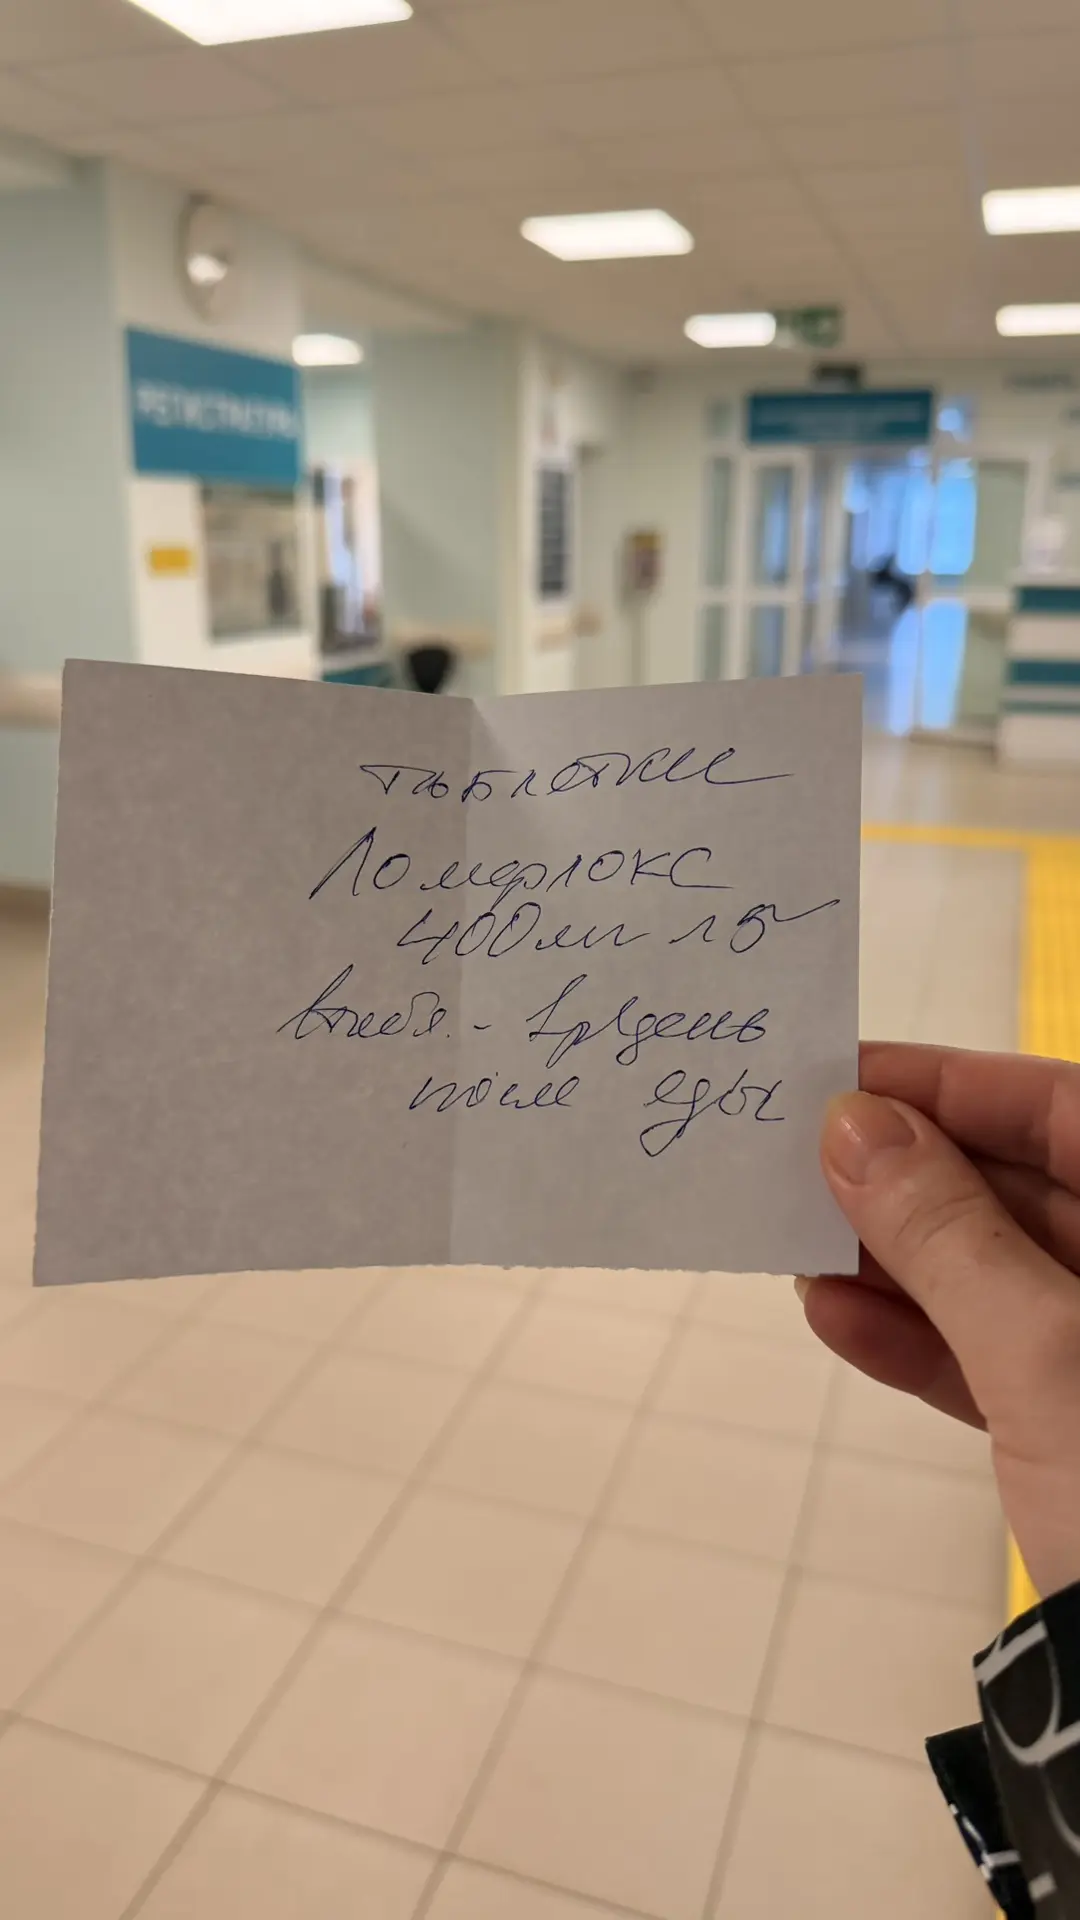 РЕГИСТРАТУРА
таблетки
Ломфлокс
400мг №5
- 1р/день
после еды